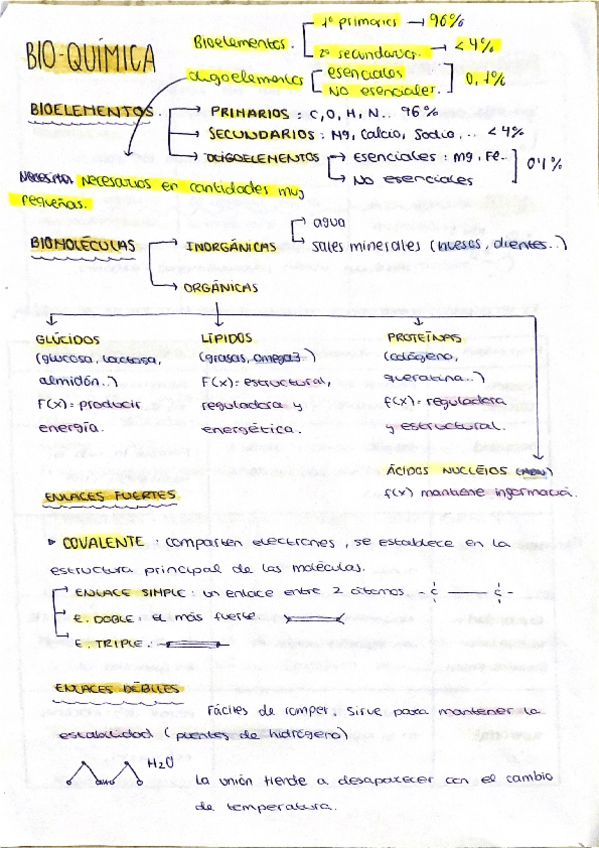 BIO-QUÍMICA
Bioelementos. 1º primarios → 96%
2º secundarios. → < 4%
oligoelementos esenciales
NO esenciales. 0,1%
BIOELEMENTOS. → PRIMARIOS : C, O, H, N... 96%
→ SECUNDARIOS : Mg, Calcio, Sodio, ... < 4%
→ OLIGOELEMENTOS → esenciales : mg, Fe..
→ No esenciales 0'1%
Necesarios en cantidades muy
pequeñas.
BIOMOLÉCULAS → INORGÁNICAS → agua
→ sales minerales (huesos, dientes..)
→ ORGÁNICAS
GLÚCIDOS
(glucosa, lactosa,
almidón..)
F(x)= producir
energía.
LÍPIDOS
(grasas, omega3..)
F(x)= estructural,
reguladora y
energética.
PROTEÍNAS
(colágeno,
queratina..)
f(x)= reguladora
y estructural.
ÁCIDOS NUCLÉIOS (ADN)
f(x) mantiene informacioi.
ENLACES FUERTES
▸ COVALENTE : comparten electrones, se establece en la
estructura principal de las moléculas.
ENLACE SIMPLE : un enlace entre 2 átomos. - C — C -
E. DOBLE : el más fuerte
E. TRIPLE :
ENLACES DÉBILES
Fáciles de romper. Sirve para mantener la
estabilidad (puentes de hidrógeno)
H2O
la unión tiende a desaparecer con el cambio
de temperatura.